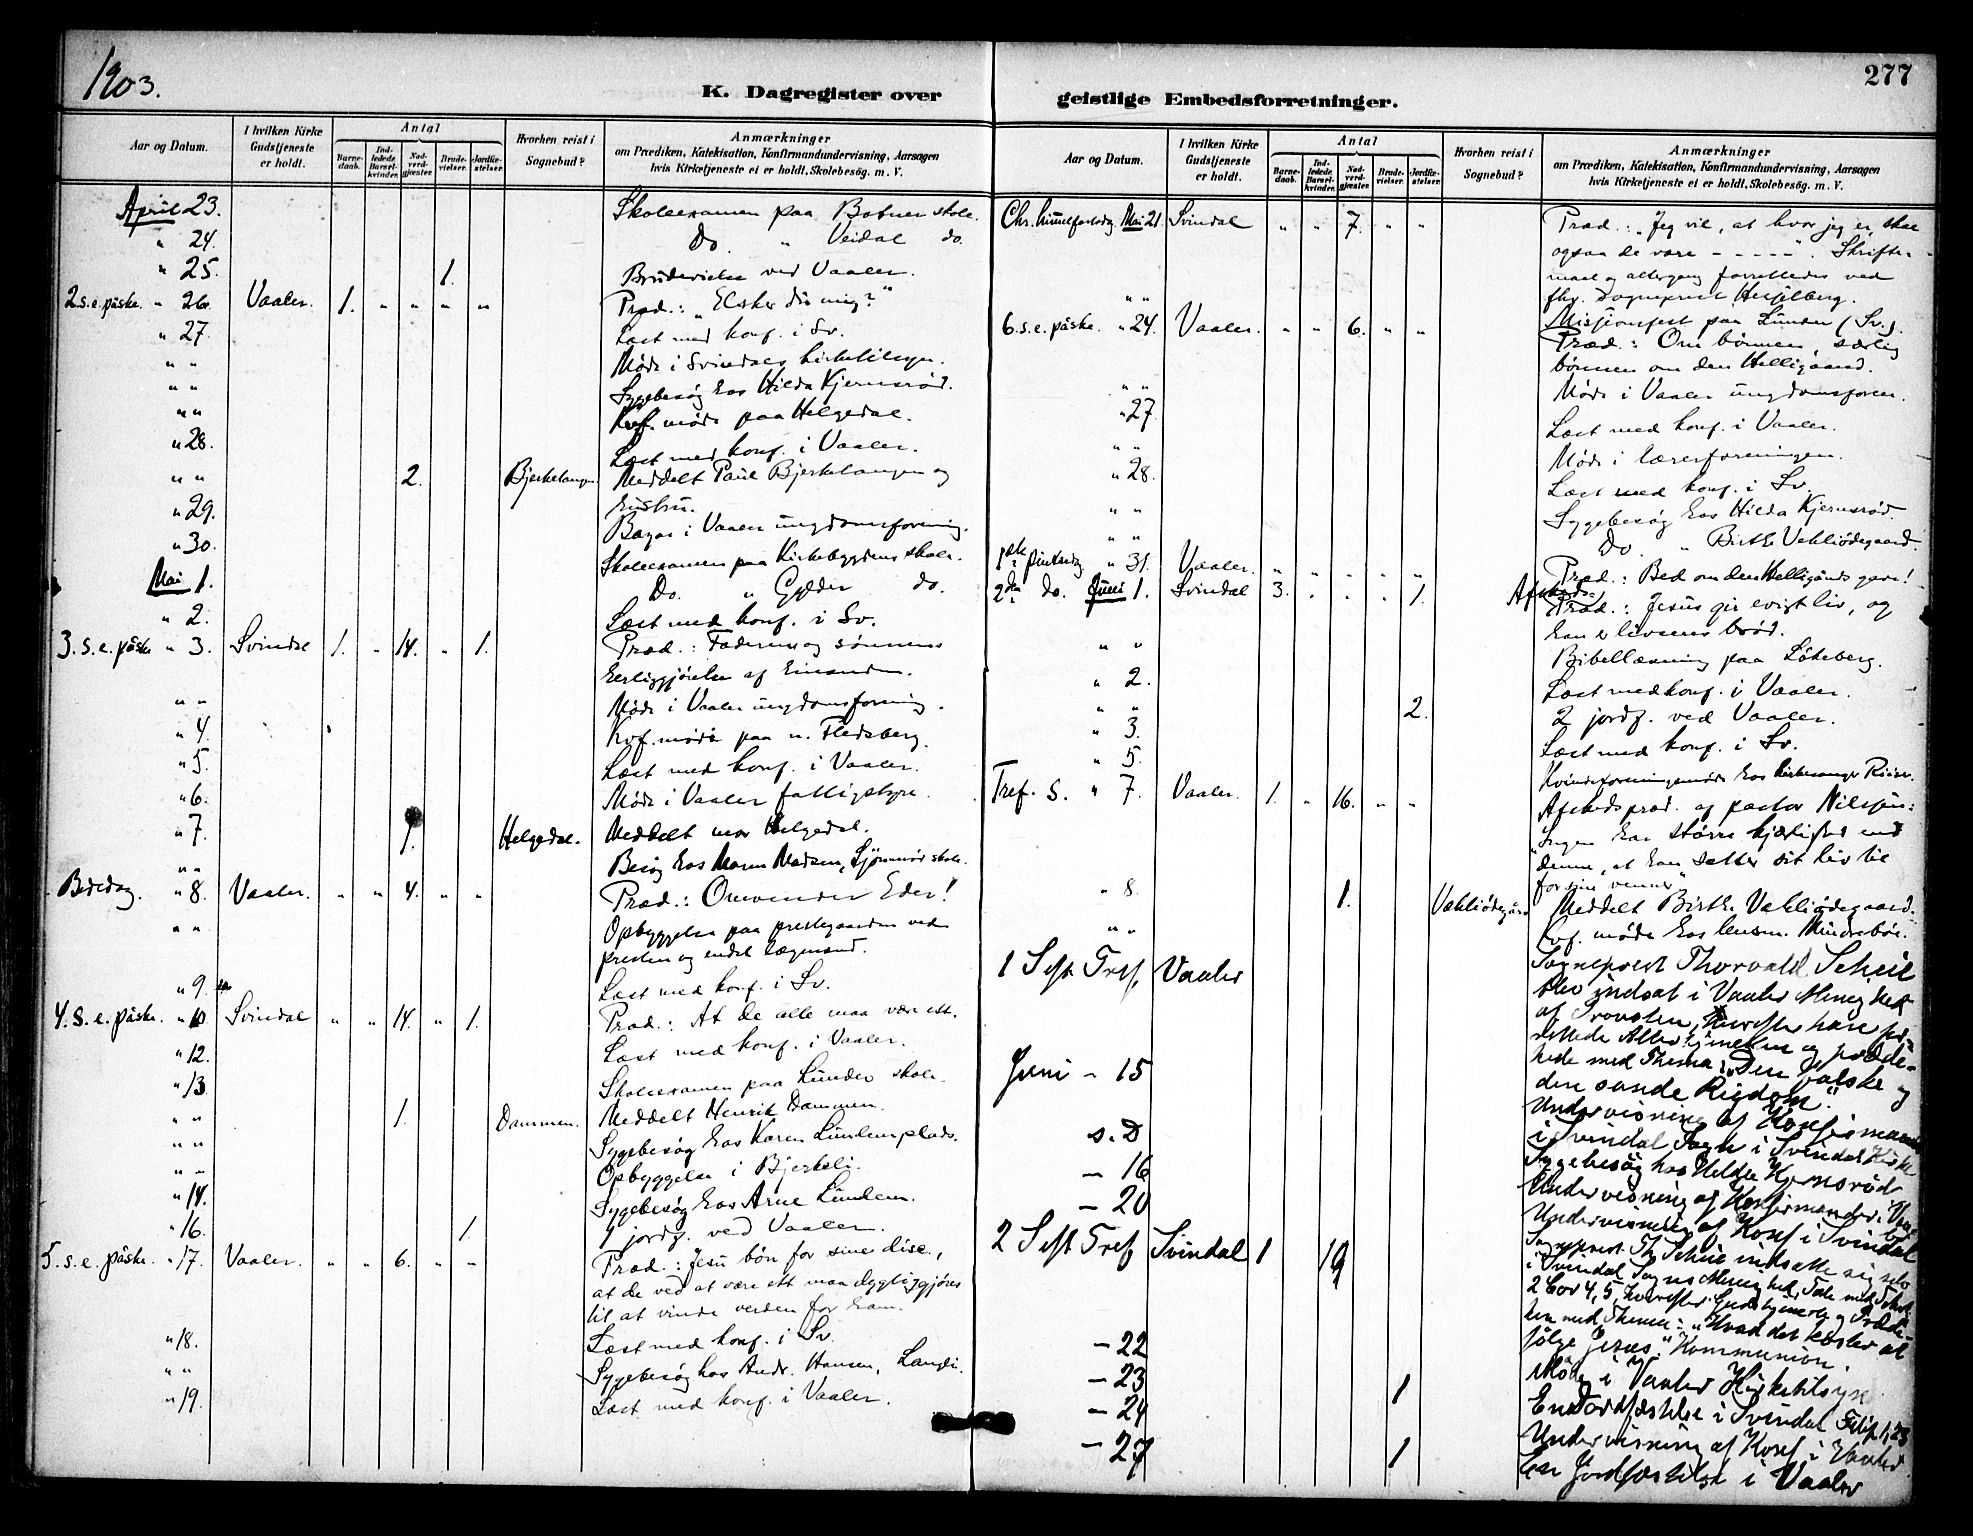 1903.
277
K. Dagregister over geistlige Embedsforretninger.
Aar og Datum. | I hvilken Kirke Gudstjeneste er holdt. | Antal | Barnedaab. | Indledede Barselkvinder. | Nadverdgjæster. | Brudevielser. | Jordfæstelser. | Hvorhen reist i Sognebud? | Anmærkninger om Prædiken, Katekisation, Konfirmandundervisning, Aarsagen hvis Kirketjeneste ei er holdt, Skolebesøg. m. V.
April 23. Skoleexamen paa Botner skole.
" 24. Do. " Veidal do.
" 25. 1. Brudevielse ved Vaaler.
2. s. e. påske. " 26. Vaaler. 1. " " " " Præd.: "Elsker du mig?"
" 27. Læst med konf. i Sv.
" " Møde i Svindals kirketilsyn.
" " Sygebesøg hos Hilda Kjernsrød.
" " Kvf. møde paa Helgedal.
" 28. Læst med konf. i Vaaler.
" " 2. Bjerkelangen. Meddelt Paul Bjerkelangen og
hustru.
" 29. Bazar i Vaaler ungdomsforening.
" 30. Skoleexamen paa Kirkebygdens skole.
Mai 1. Do. " Gylder do.
" 2. Læst med konf. i Sv.
3. s. e. påske " 3. Svindal 1. " 14. " 1. Præd.: Faderens og sønnens
herliggjørelse af hinanden.
" " Møde i Vaaler ungdomsforening.
" 4. Kvf. møde paa n. Fledsberg.
" 5. Læst med konf. i Vaaler.
" 6. Møde i Vaaler fattigstyre.
" 7. 1. Helgedal. Meddelt mor Helgedal.
" " Besøg hos Maren Madsen, skole.
Bededag " 8. Vaaler. " " 4. " " Præd.: Omvender Eder!
" " Opbyggelse paa prestegaarden ved
presten og endel lægmænd.
" 9. Læst med konf. i Sv.
4. s. e. påske. " 10 Svindal " " 14. " 1. Præd.: At de alle maa være ett.
" 12. Læst med konf. i Vaaler.
" 13. Skoleexamen paa Lunder skole.
" " 1. Dammen. Meddelt Henrik Dammen.
" " Sygebesøg hos Karen Lundemplads.
" " Opbyggelse i Bjerkeli.
" 14. Sygebesøg hos Arne Lundem.
" 16. 1 1 jordf. ved Vaaler.
5. s. e. påske. " 17. Vaaler. " " 6. " " Præd.: Jesu bøn for sine disc.,
at de ved at være ett maa dygtiggjøres
til at vinde verden for ham.
" 18. Læst med konf. i Sv.
" " Sygebesøg hos Andr. Hansen,
" 19. Læst med konf. i Vaaler.
Aar og Datum. | I hvilken Kirke Gudstjeneste er holdt. | Antal | Barnedaab. | Indledede Barselkvinder. | Nadverdgjæster. | Brudevielser. | Jordfæstelser. | Hvorhen reist i Sognebud? | Anmærkninger om Prædiken, Katekisation, Konfirmandundervisning, Aarsagen hvis Kirketjeneste ei er holdt, Skolebesøg. m. V.
Chr. himmelfartsdag Mai 21. Svindal " " 7. " " Præd.: "Jeg vil, at hvor jeg er, skal
ogsaa de være - - - - -". Skrifte-
maal og altergang forrettedes ved
fhv. sogneprest Hesselberg.
" " Misjionsfest paa Lunder (Sv.).
6. s. e. påske. " 24. Vaaler. " " 6. " " Præd.: Om bønnen, særlig
bønnen om den Helligaand.
" " Møde i Vaaler ungdomsforen.
" 27. Læst med konf. i Vaaler.
" " Møde i lærerforeningen.
" 28. Læst med konf. i Sv.
" " Sygebesøg hos Hilda Kjernsrød.
" " Do. " Birthe Vekliødegaard.
1ste pintsedag " 31. Vaaler. " " " " " Præd.: Bed om den Helligånds gave!
2den do. Juni 1. Svindal 3. " " " 1. Afskeds-
Præd.: Jesus gir evigt liv, og
han er livsens brød.
" " Bibellæsning paa Løkeberg.
" 2. Læst med konf. i Vaaler.
" " 2. 2 jordf. ved Vaaler.
" 3. Læst med konf. i Sv.
" 5. Kvindeforeningsmøde hos kirkesanger Riiser.
Tref. S. " 7. Vaaler. 1. " 16. " " Afskedspræd. af pastor Nilssen:
"Ingen har større kjærlighed end
denne, at han sætter sit liv til
for sine venner"
" 8. 1. Vekliødegård Meddelt Birthe Vekliødegaard.
" " Kvf. møde hos lensm. Mindrebøe.
1 Søft Tref. Vaaler Sogneprest Thorvald Scheie
blev indsat i Vaaler Menighed
af Provsten, hvorefter han for-
rettede Altertjenesten og præde-
kede med Thema: "Den falske og
den sande Rigdom."
Juni - 15 Undervisning af Konfirmander
i Svindal Sogn i Svindal Kirke
s. D Sygebesøg hos Helda Kjernsrød
- 16 Undervisning af Konfirmander i Vaaler
- 20 Undervisning af Konf i Svindal
2 Søft Tref Svindal 1 19 Sogneprest Th Scheie indsatte sig selv
i Svindal Sogns Menighed, Tale med Tekst
2 Cor 4,5, hvorefter Gudstjeneste og Prædi-
ken med Thema: "Hvad det koster at
følge Jesus." Kommunion.
- 22 Møde i Vaaler Kirketilsyn
- 23 1 En Jordfæstelse i Svindal Filip 1,23
- 24 Undervisning af Konf. i Vaaler
- 27 1 En Jordfæstelse i Vaaler